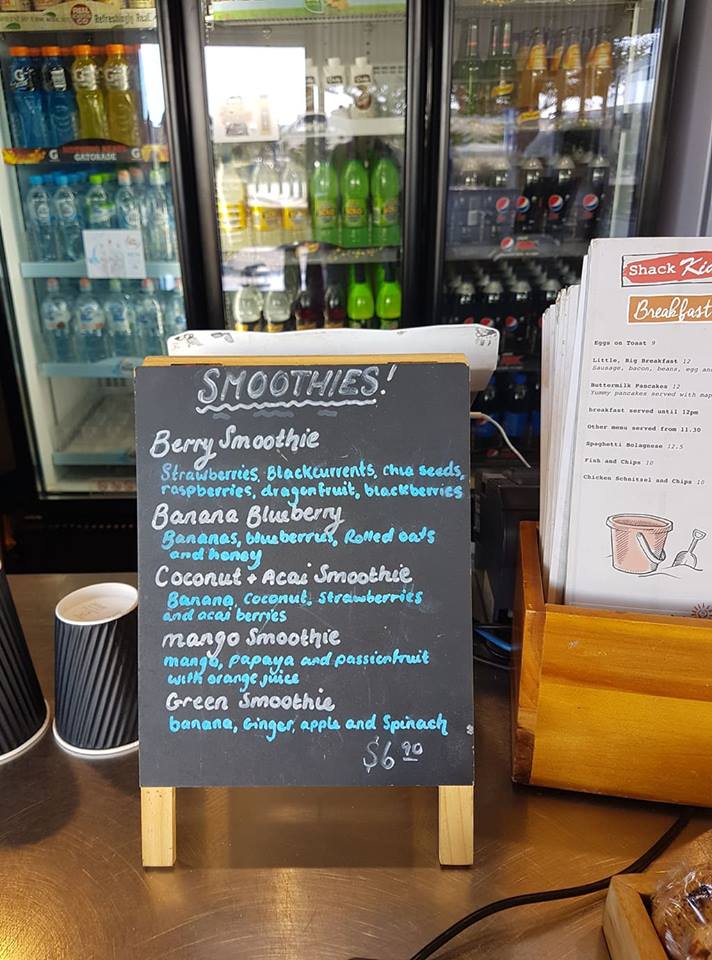 Refreshingly Real.
GATORADE
SMOOTHIES!
Berry Smoothie
Strawberries, Blackcurrents, chia seeds,
raspberries, dragonfruit, blackberries
Banana Blueberry
Bananas, blueberries, Rolled oats
and honey
Coconut + Acai Smoothie
Banana, Coconut, Strawberries
and acai berries
mango Smoothie
mango, papaya and passionfruit
with orange juice
Green Smoothie
banana, Ginger, apple and Spinach
$6 90
Shack
Breakfast
Eggs on Toast 9
Little, Big Breakfast 12
Sausage, bacon, beans, egg
Buttermilk Pancakes 12
Yummy pancakes served with
breakfast served until 12pm
Other menu served from 11.30
Spaghetti Bolagnese 12.5
Fish and Chips 10
Chicken Schnitzel and Chips 10